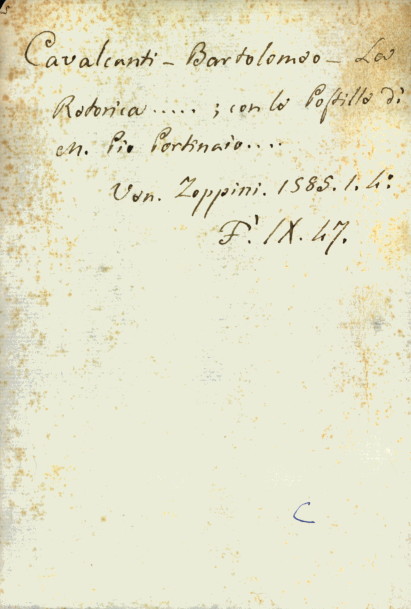 Cavalcanti - Bartolomeo - La
Retorica ..... ; con le Postille di
M. Pio Portinaio ....
Ven. Zoppini. 1585. 1. 4:
F. IX. 47.
C